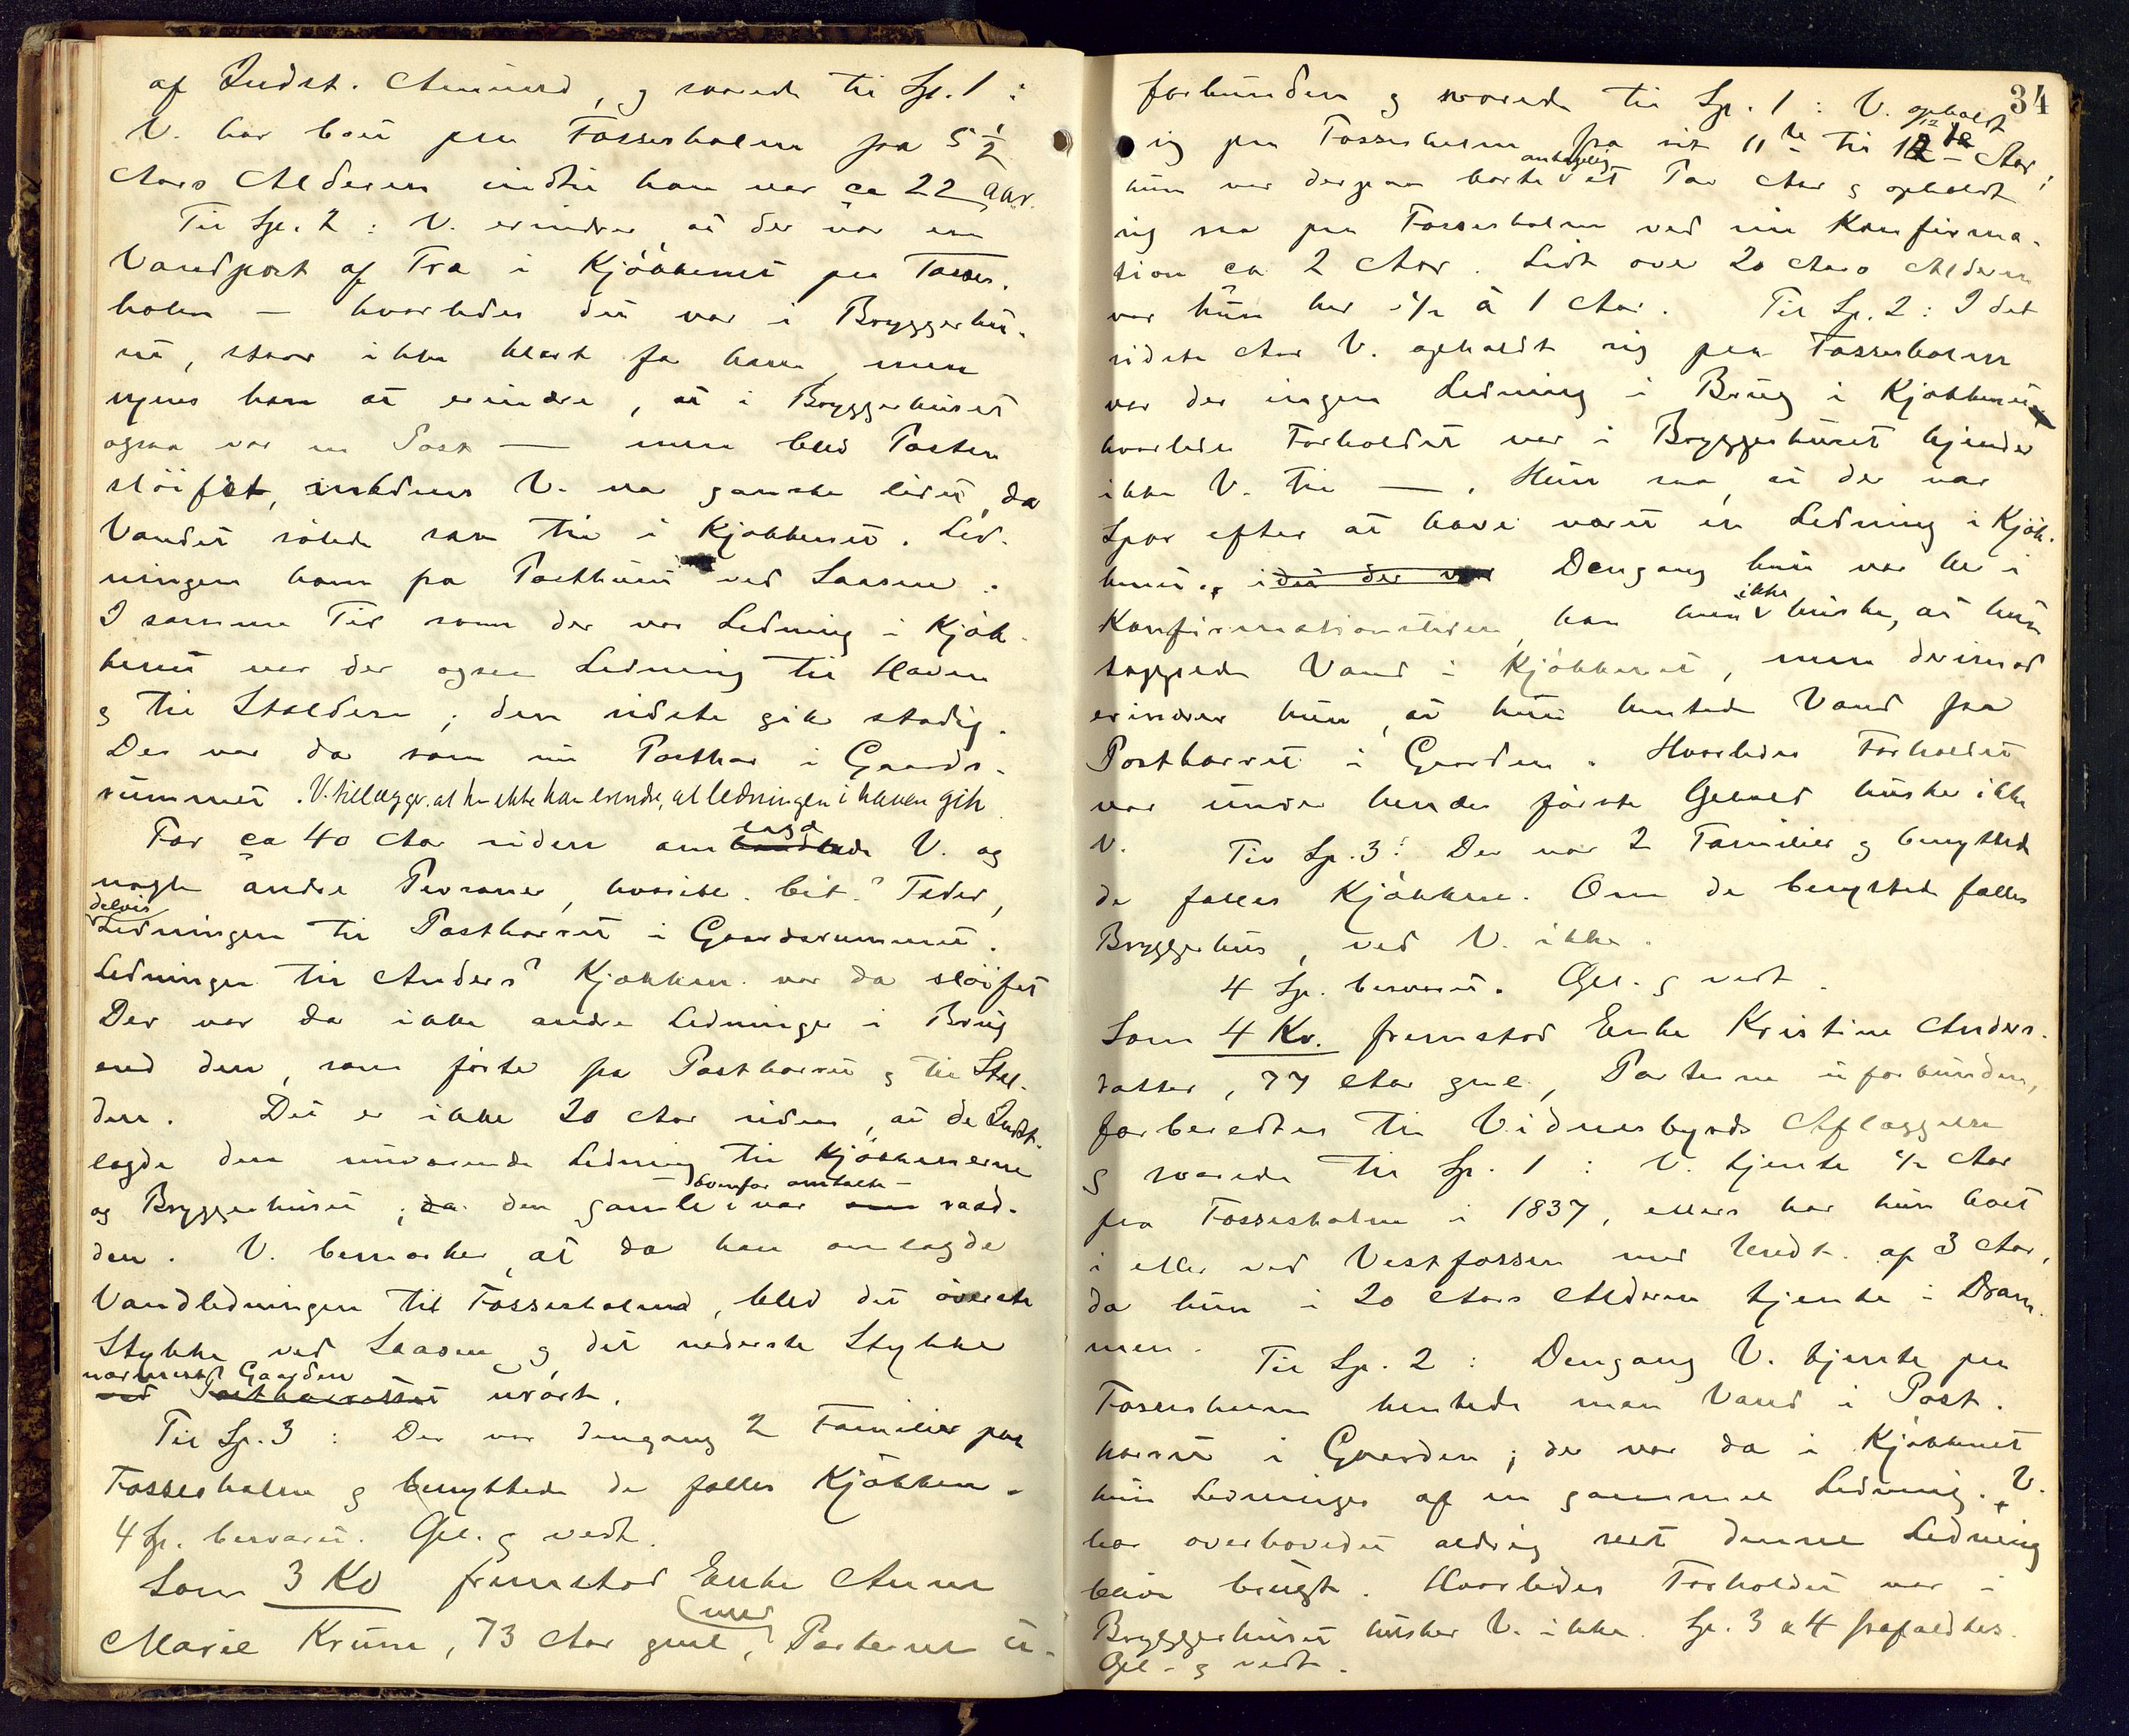 af Indst. Amund, og svarede til Sp. 1:
V. har boet paa Fossesholm fra 5 1/2
Aars Alderen indtil han var ca 22 Aar.
Til Sp. 2: V. erindrer, at der var en
Vandpost af Træ i Kjøkkenet paa Fosses-
holm — hvorledes det var i Bryggerhu-
set, staar ikke klart for ham, men
synes han at erindre, at i Bryggerhuset
ogsaa var en Post — men blev Posten
sløifet, medens V. var ganske liden, da
Vandet sølede saa til i Kjøkkenet. Led-
ningen kom fra Posthuset ved Laasen.
I samme Tid som der var Ledning i Kjøk-
kenet var der ogsaa Ledning til Haven
og til Stalden; den sidste gik stadig.
Der var da som nu Postkar i Gaards-
rummet. V. tillægger, at han ikke kan erindre, at ledningen i haven gik
For ca 40 Aar siden omlagde V. og
nogle andre Personer, hvoribl. Cit.s Fader,
delvis
Ledningen til Postkarret i Gaardsrummet.
Ledningen til Anders' Kjøkken var da sløifet
Der var da ikke andre Ledninger i Brug
end den, som førte fra Postkarret og til Stal-
den. Det er ikke 20 Aar siden, at de Indst.
lagde den nuværende Ledning til Kjøkkenerne
ovenfor omtalte
og Bryggerhuset; da den gamle var raad-
den. V. bemærker, at da han omlagde
Vandledningen til Fossesholm, blev det øverste
Stykke ved Laasen og det nederste Stykke
nærmest Gaarden
ved Postkarret urørt.
Til Sp. 3: Der var dengang 2 Familier paa
Fossesholm og benyttede de fælles Kjøkken.
4 Sp. besvaret. Opl. og vedt.
Som 3 Kv fremstod Enke Anne
Marie Krum, 73 Aar gml, med Parterne u-
34
forbunden og svarede til Sp. 1: V. opholdt
sig paa Fossesholm fra sit 11te til 12te Aar;
hun var derpaa borte antagelig et Par Aar og opholdt
sig saa paa Fossesholm ved sin Konfirma-
sion ca 2 Aar. Lidt over 20 Aars Alderen
var hun her 1/2 à 1 Aar. Til Sp. 2: I det
sidste Aar V. opholdt sig paa Fossesholm
var der ingen Ledning i Brug i Kjøkkenet
hvorledes Forholdet var i Bryggerhuset kjender
ikke V. til —. Hun saa, at der var
Spor efter at have været en Ledning i Kjøk-
kenet, idet der var Dengang hun var her i
Konfirmationstiden, kan hun ikke huske, at hun
tappede Vand i Kjøkkenet, men derimod
erindrer hun, at hun hentede Vand fra
Postkarret i Gaarden. Hvorledes Forholdet
var under hendes første Ophold husker ikke
V. Til Sp. 3: Der var 2 Familier og benyttede
de fælles Kjøkken. Om de benyttede fælles
Bryggerhus, ved V. ikke.
4 Sp. besvaret. Opl. og vedt.
Som 4 Kv. fremstod Enke Kristine Anders-
datter, 77 Aar gml, Parterne uforbunden,
forberedtes til Vidnesbyrds Aflæggelse
og svarede til Sp. 1: V. tjente 1/2 Aar
paa Fossesholm i 1837, ellers har hun boet
i eller ved Vestfossen med Undt. af 3 Aar,
da hun i 20 Aars Alderen tjente i Dram-
men. Til Sp. 2: Dengang V. tjente paa
Fossesholm hentede man Vand i Post-
karret i Gaarden; der var da i Kjøkkenet
kun Levninger af en gammel Ledning. V.
har overhovedet aldrig seet denne Ledning
blive brugt. Hvorledes Forholdet var i
Bryggerhuset husker V. ikke. Sp. 3 & 4 frafaldtes.
Opl. og vedt.